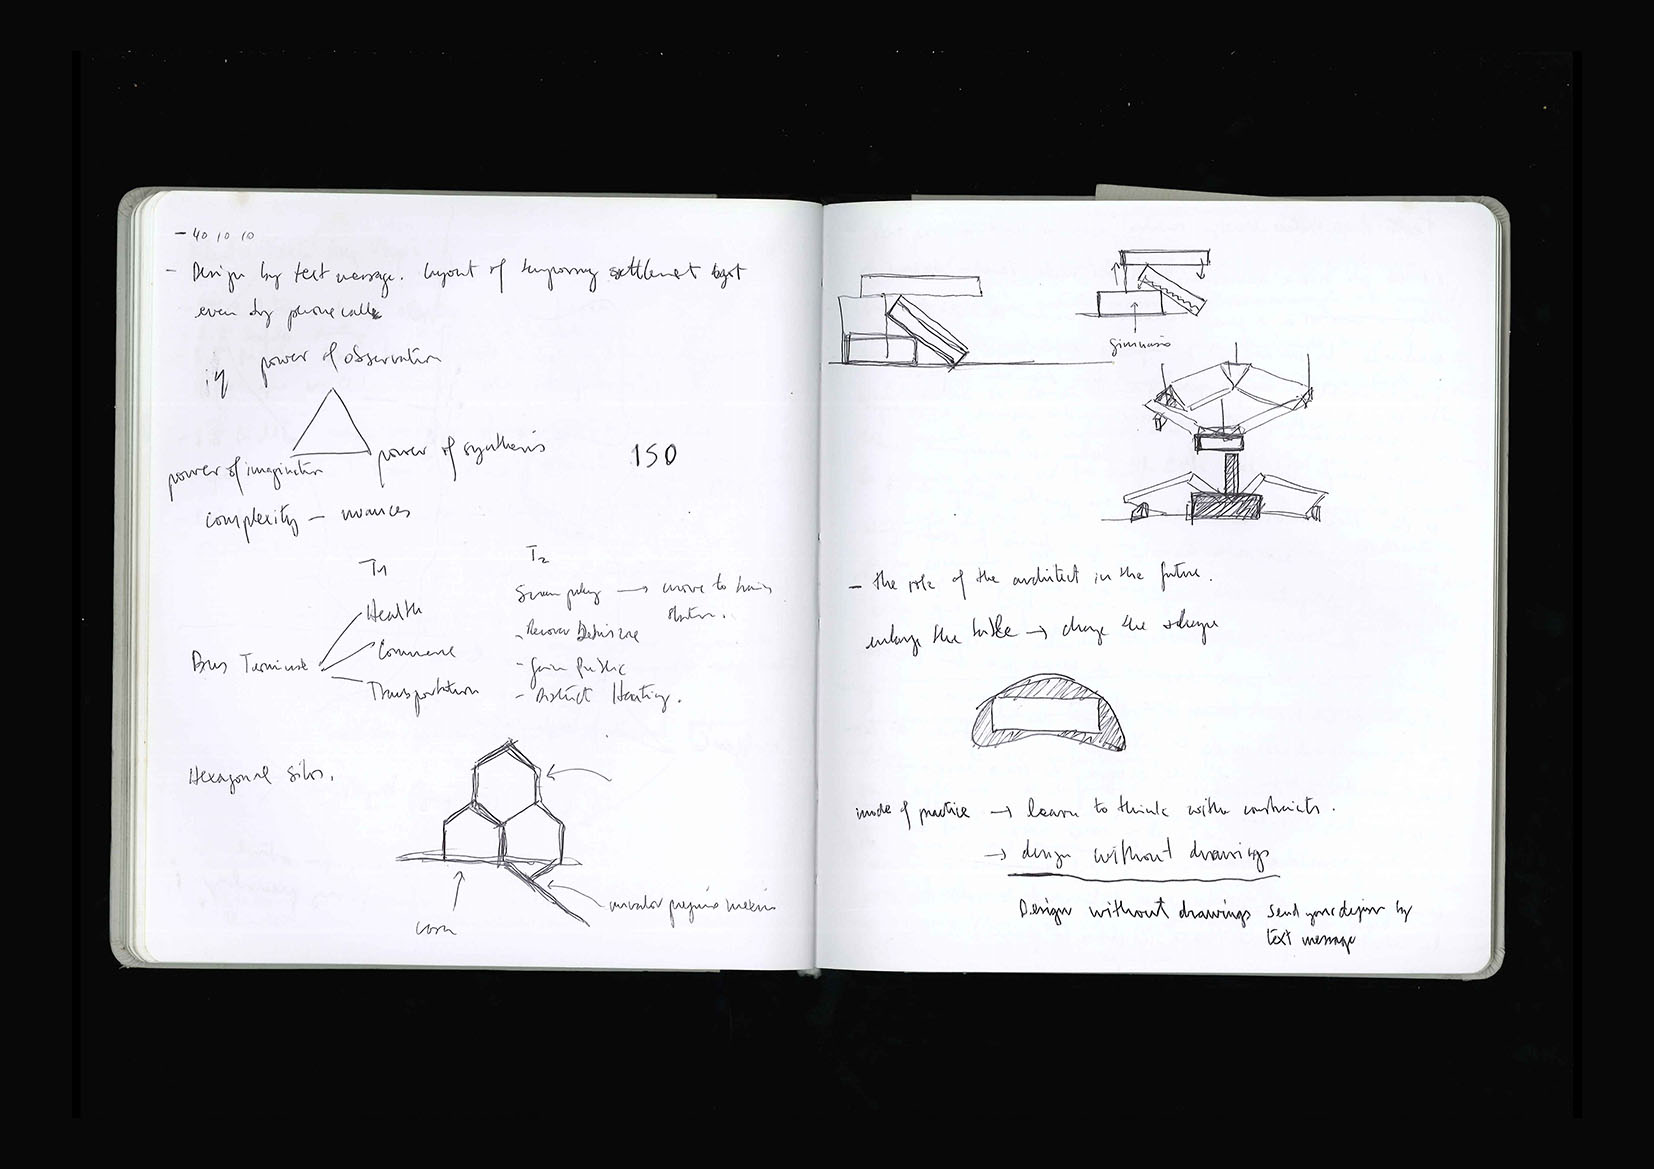 - 40 10 10
- Design by text message. layout of temporary settlement
even by phone calls
power of observation
power of synthesis
150
power of imagination
complexity - nuances
T1
T2
Health
→ move to
Bus Terminal
Commerce
- Public
Transportation
- District Heating.
Hexagonal Silos.
corn
Gimnasio
- the role of the architect in the future.
enlarge the table → change the shape
mode of practice → learn to think with constraints.
→ design without drawings
Design without drawings Send your design by
text message